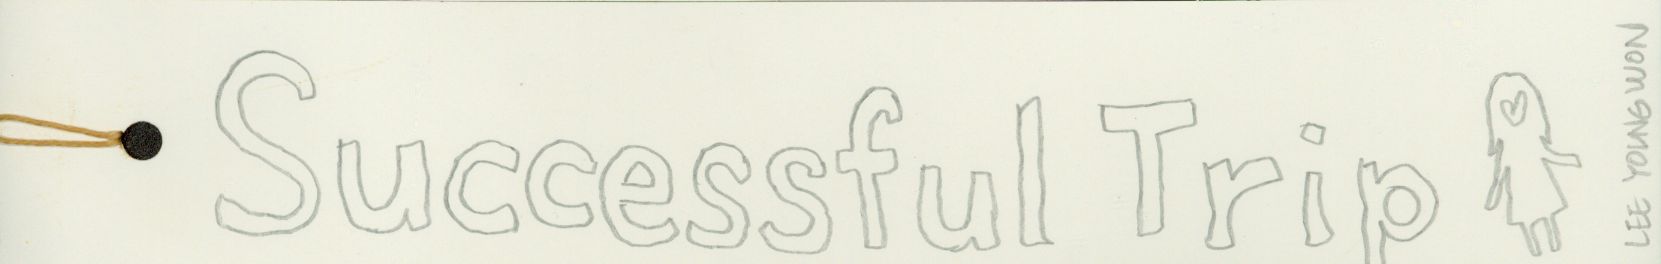 Successful Trip
LEE YOUNGWON